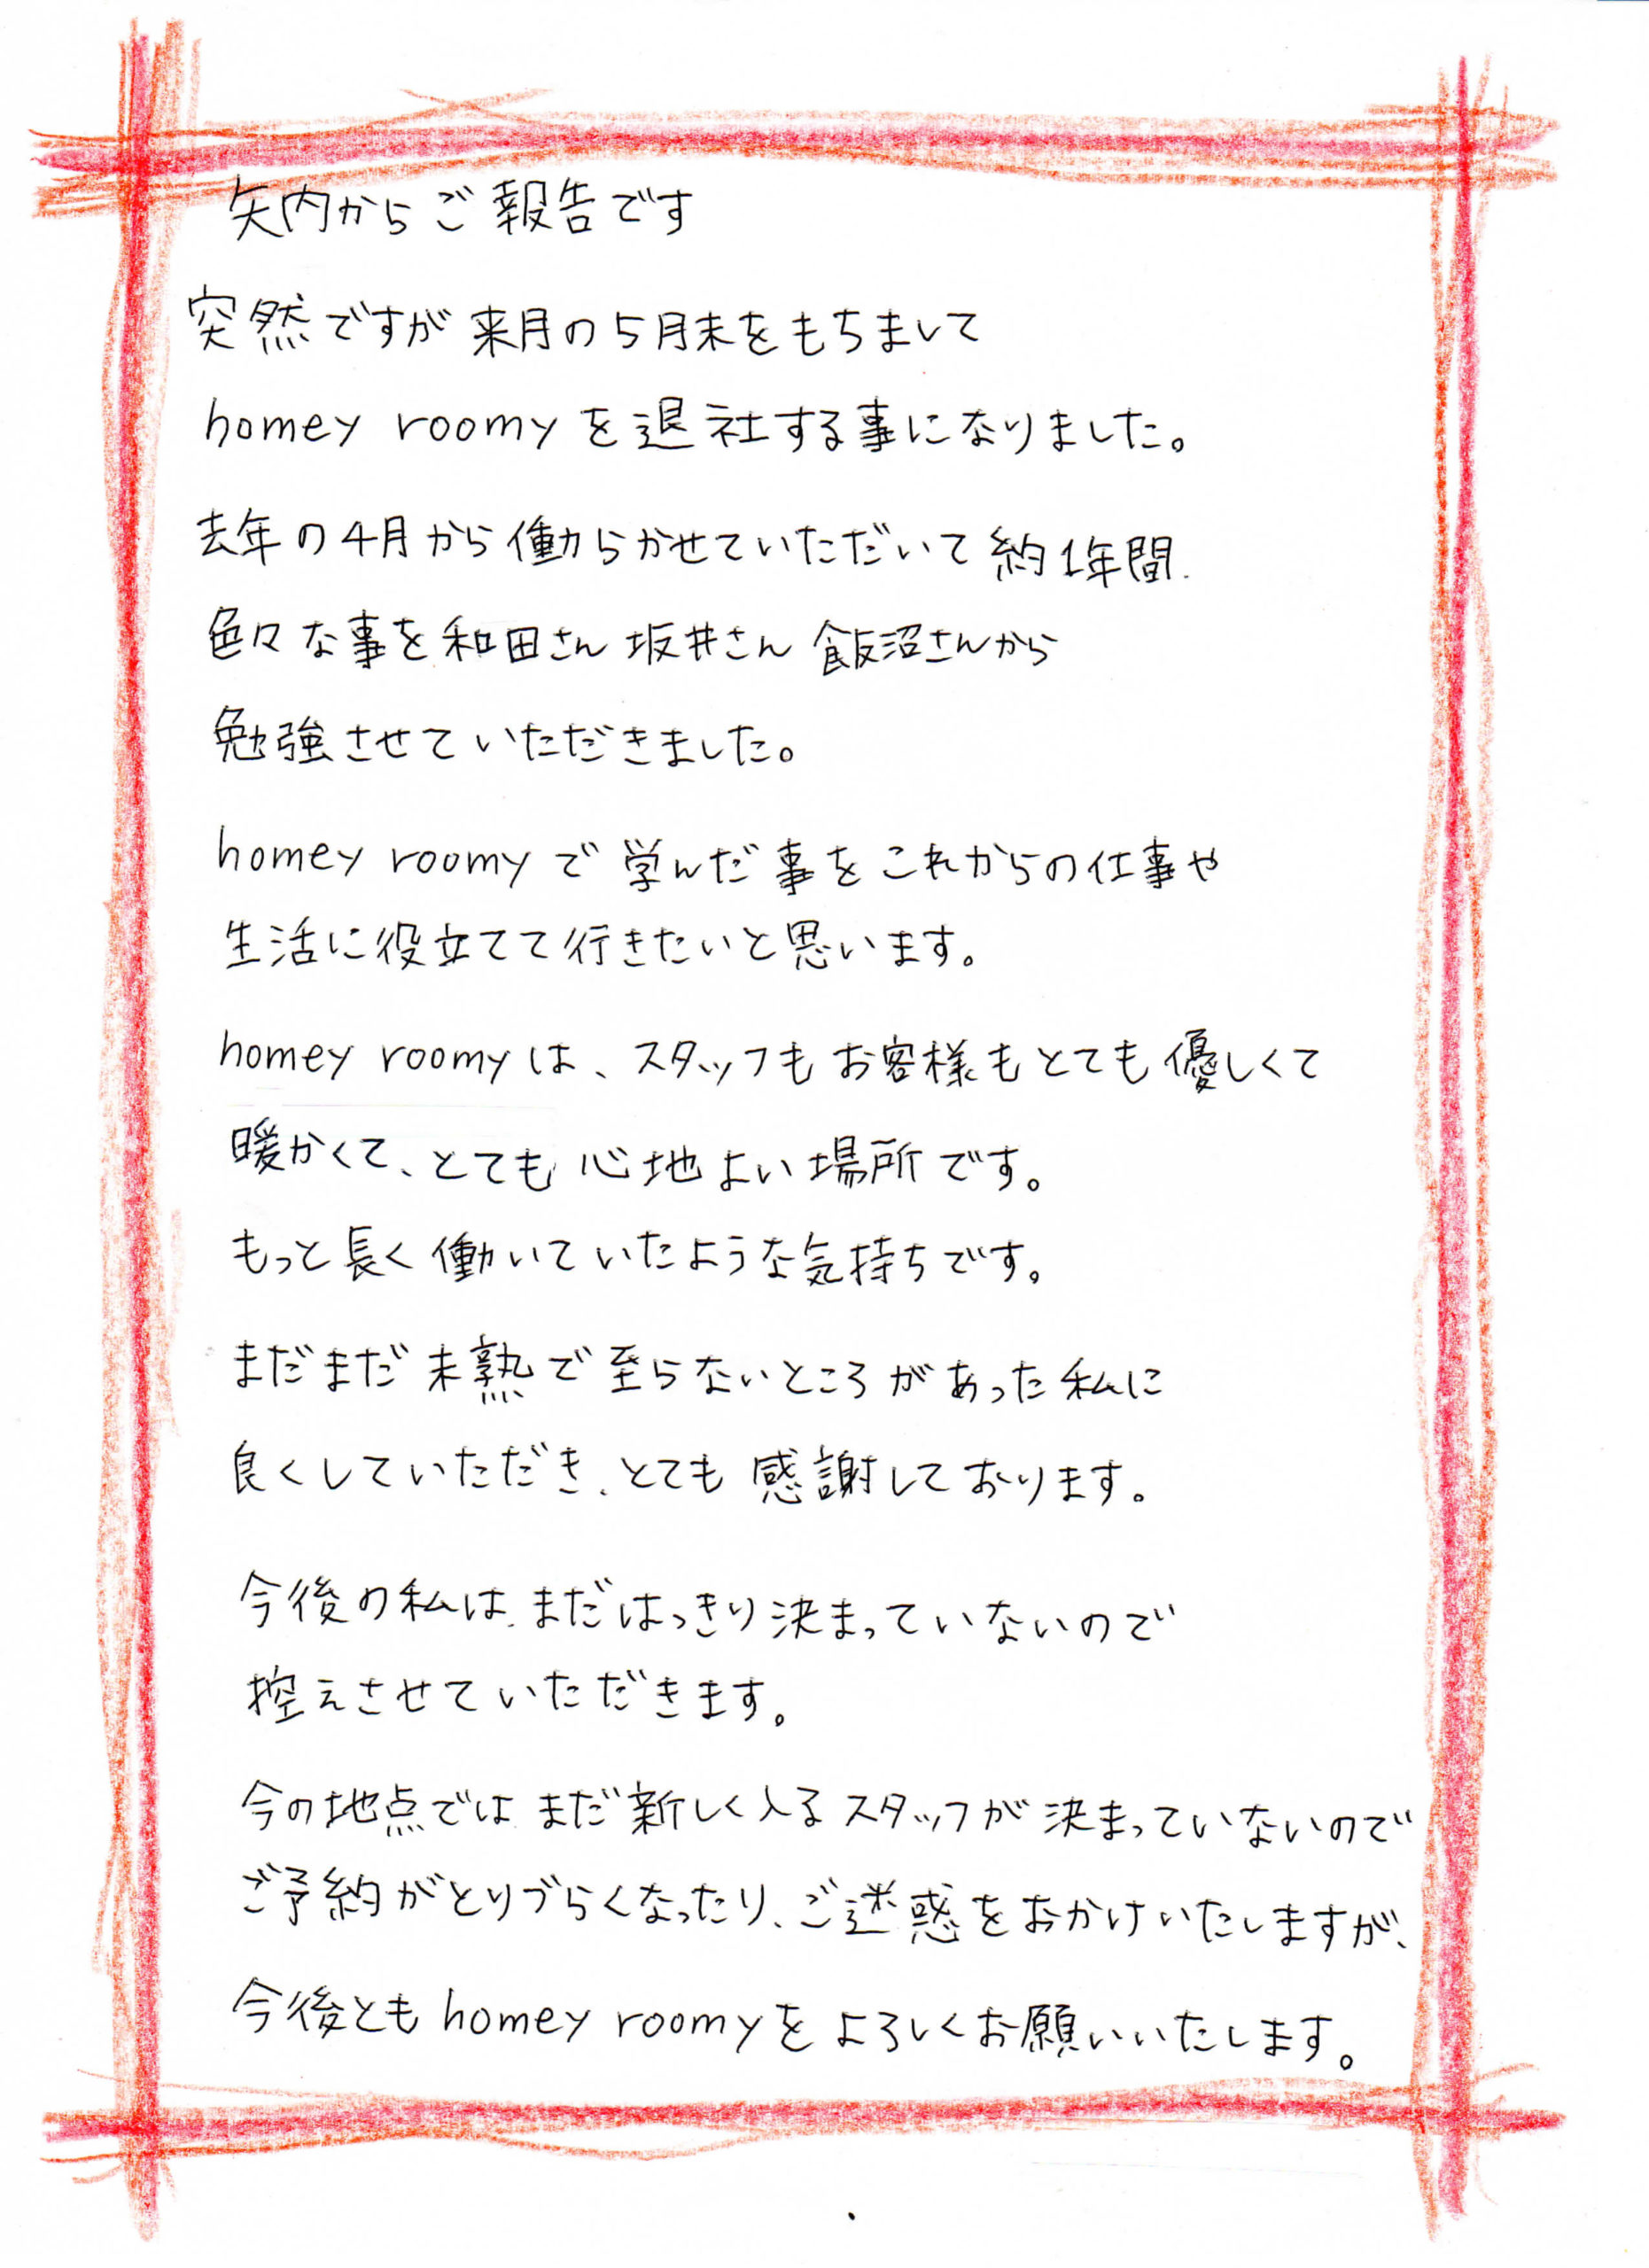 矢内からご報告です
突然ですが来月の5月末をもちまして
homey roomyを退社する事になりました。
去年の4月から働らかせていただいて約1年間
色々な事を和田さん坂井さん飯沼さんから
勉強させていただきました。
homey roomyで学んだ事をこれからの仕事や
生活に役立てて行きたいと思います。
homey roomyは、スタッフもお客様もとても優しくて
暖かくて、とても心地よい場所です。
もっと長く働いていたような気持ちです。
まだまだ未熟で至らないところがあった私に
良くしていただき、とても感謝しております。
今後の私は、まだはっきり決まっていないので
控えさせていただきます。
今の地点ではまだ新しく入るスタッフが決まっていないので
ご予約がとりづらくなったり、ご迷惑をおかけいたしますが、
今後ともhomey roomyをよろしくお願いいたします。